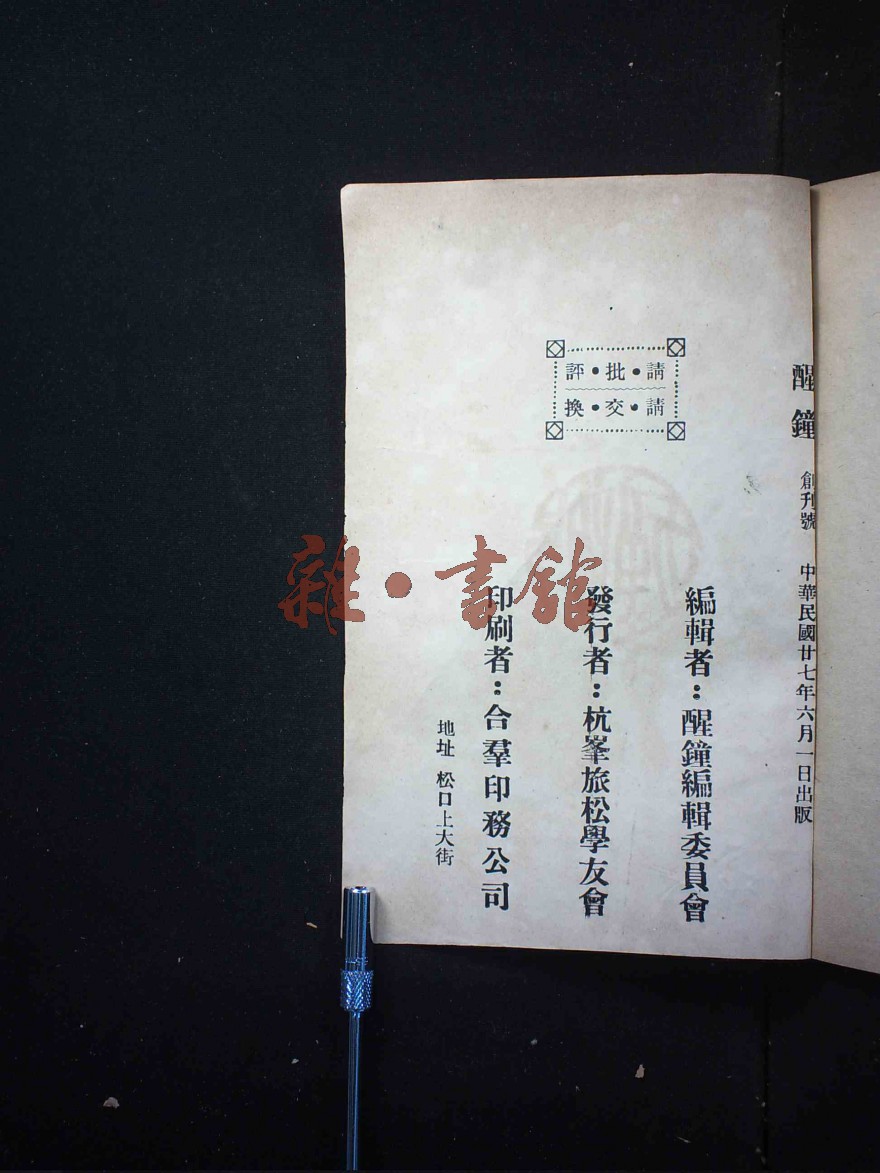 醒鐘 創刊號 中華民國廿七年六月一日出版
請•批•評
請•交•換
編輯者：醒鐘編輯委員會
發行者：杭峯旅松學友會
印刷者：合羣印務公司
地址 松口上大街
雜•書館